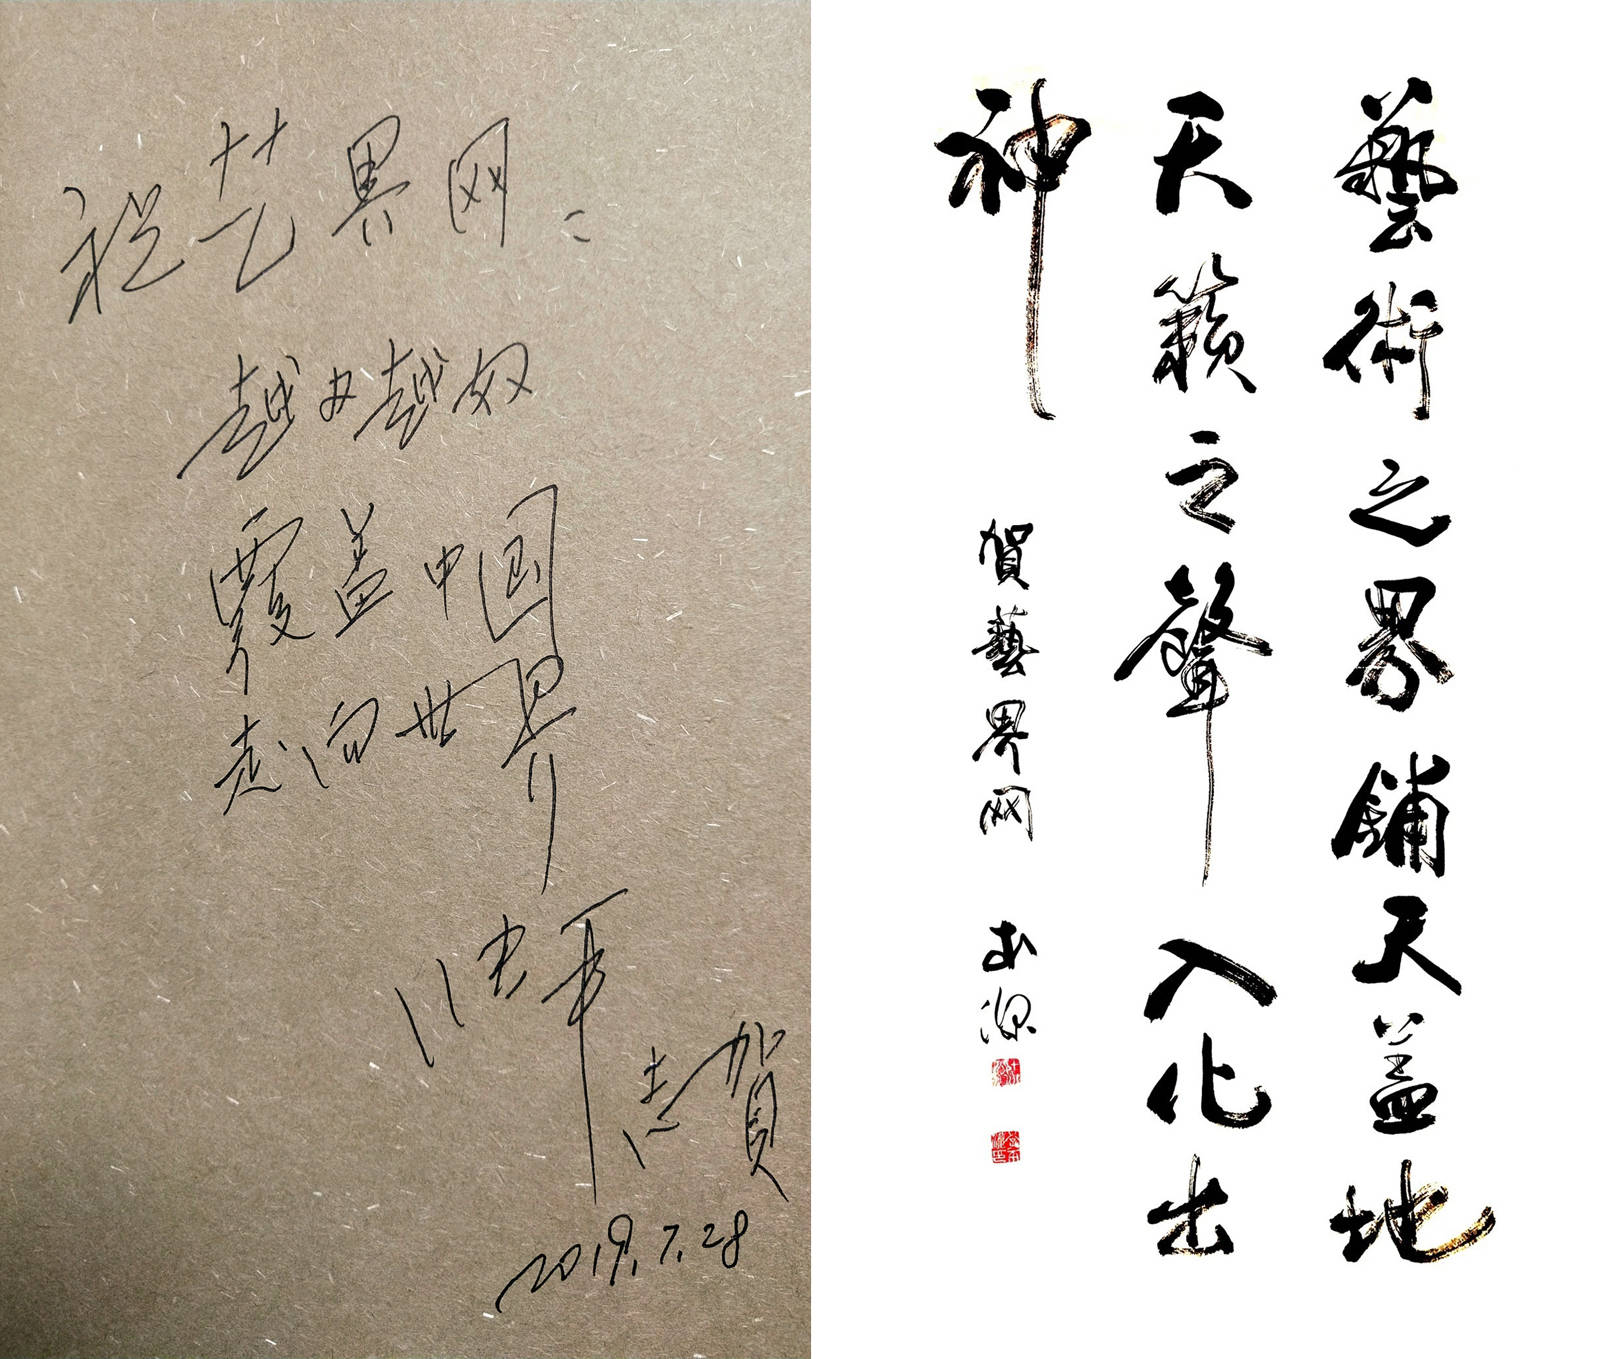 祝艺界网:
越办越好
覆盖中国
走向世界
志贺
2019.7.28
藝術之界鋪天蓋地
天籟之聲入化出
神
賀藝界网